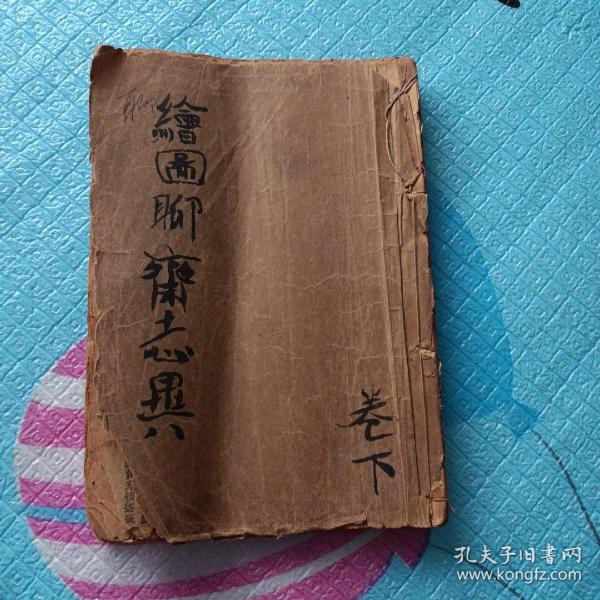 繪圖聊齋志異
卷下
孔夫子旧書网
www.kongfz.com